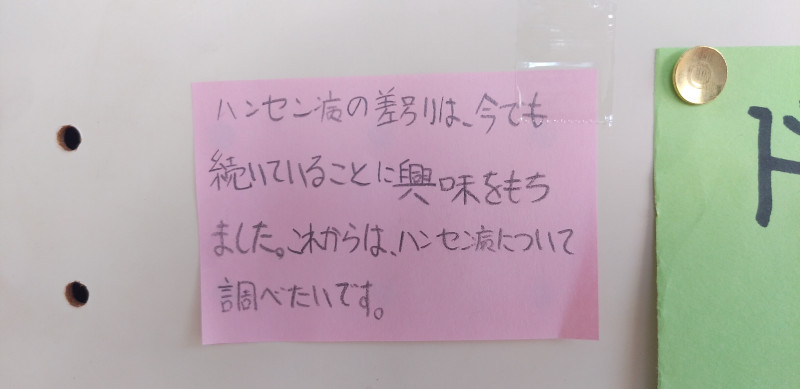 ハンセン病の差別は、今でも
続いていることに興味をもち
ました。これからは、ハンセン病について
調べたいです。
ド